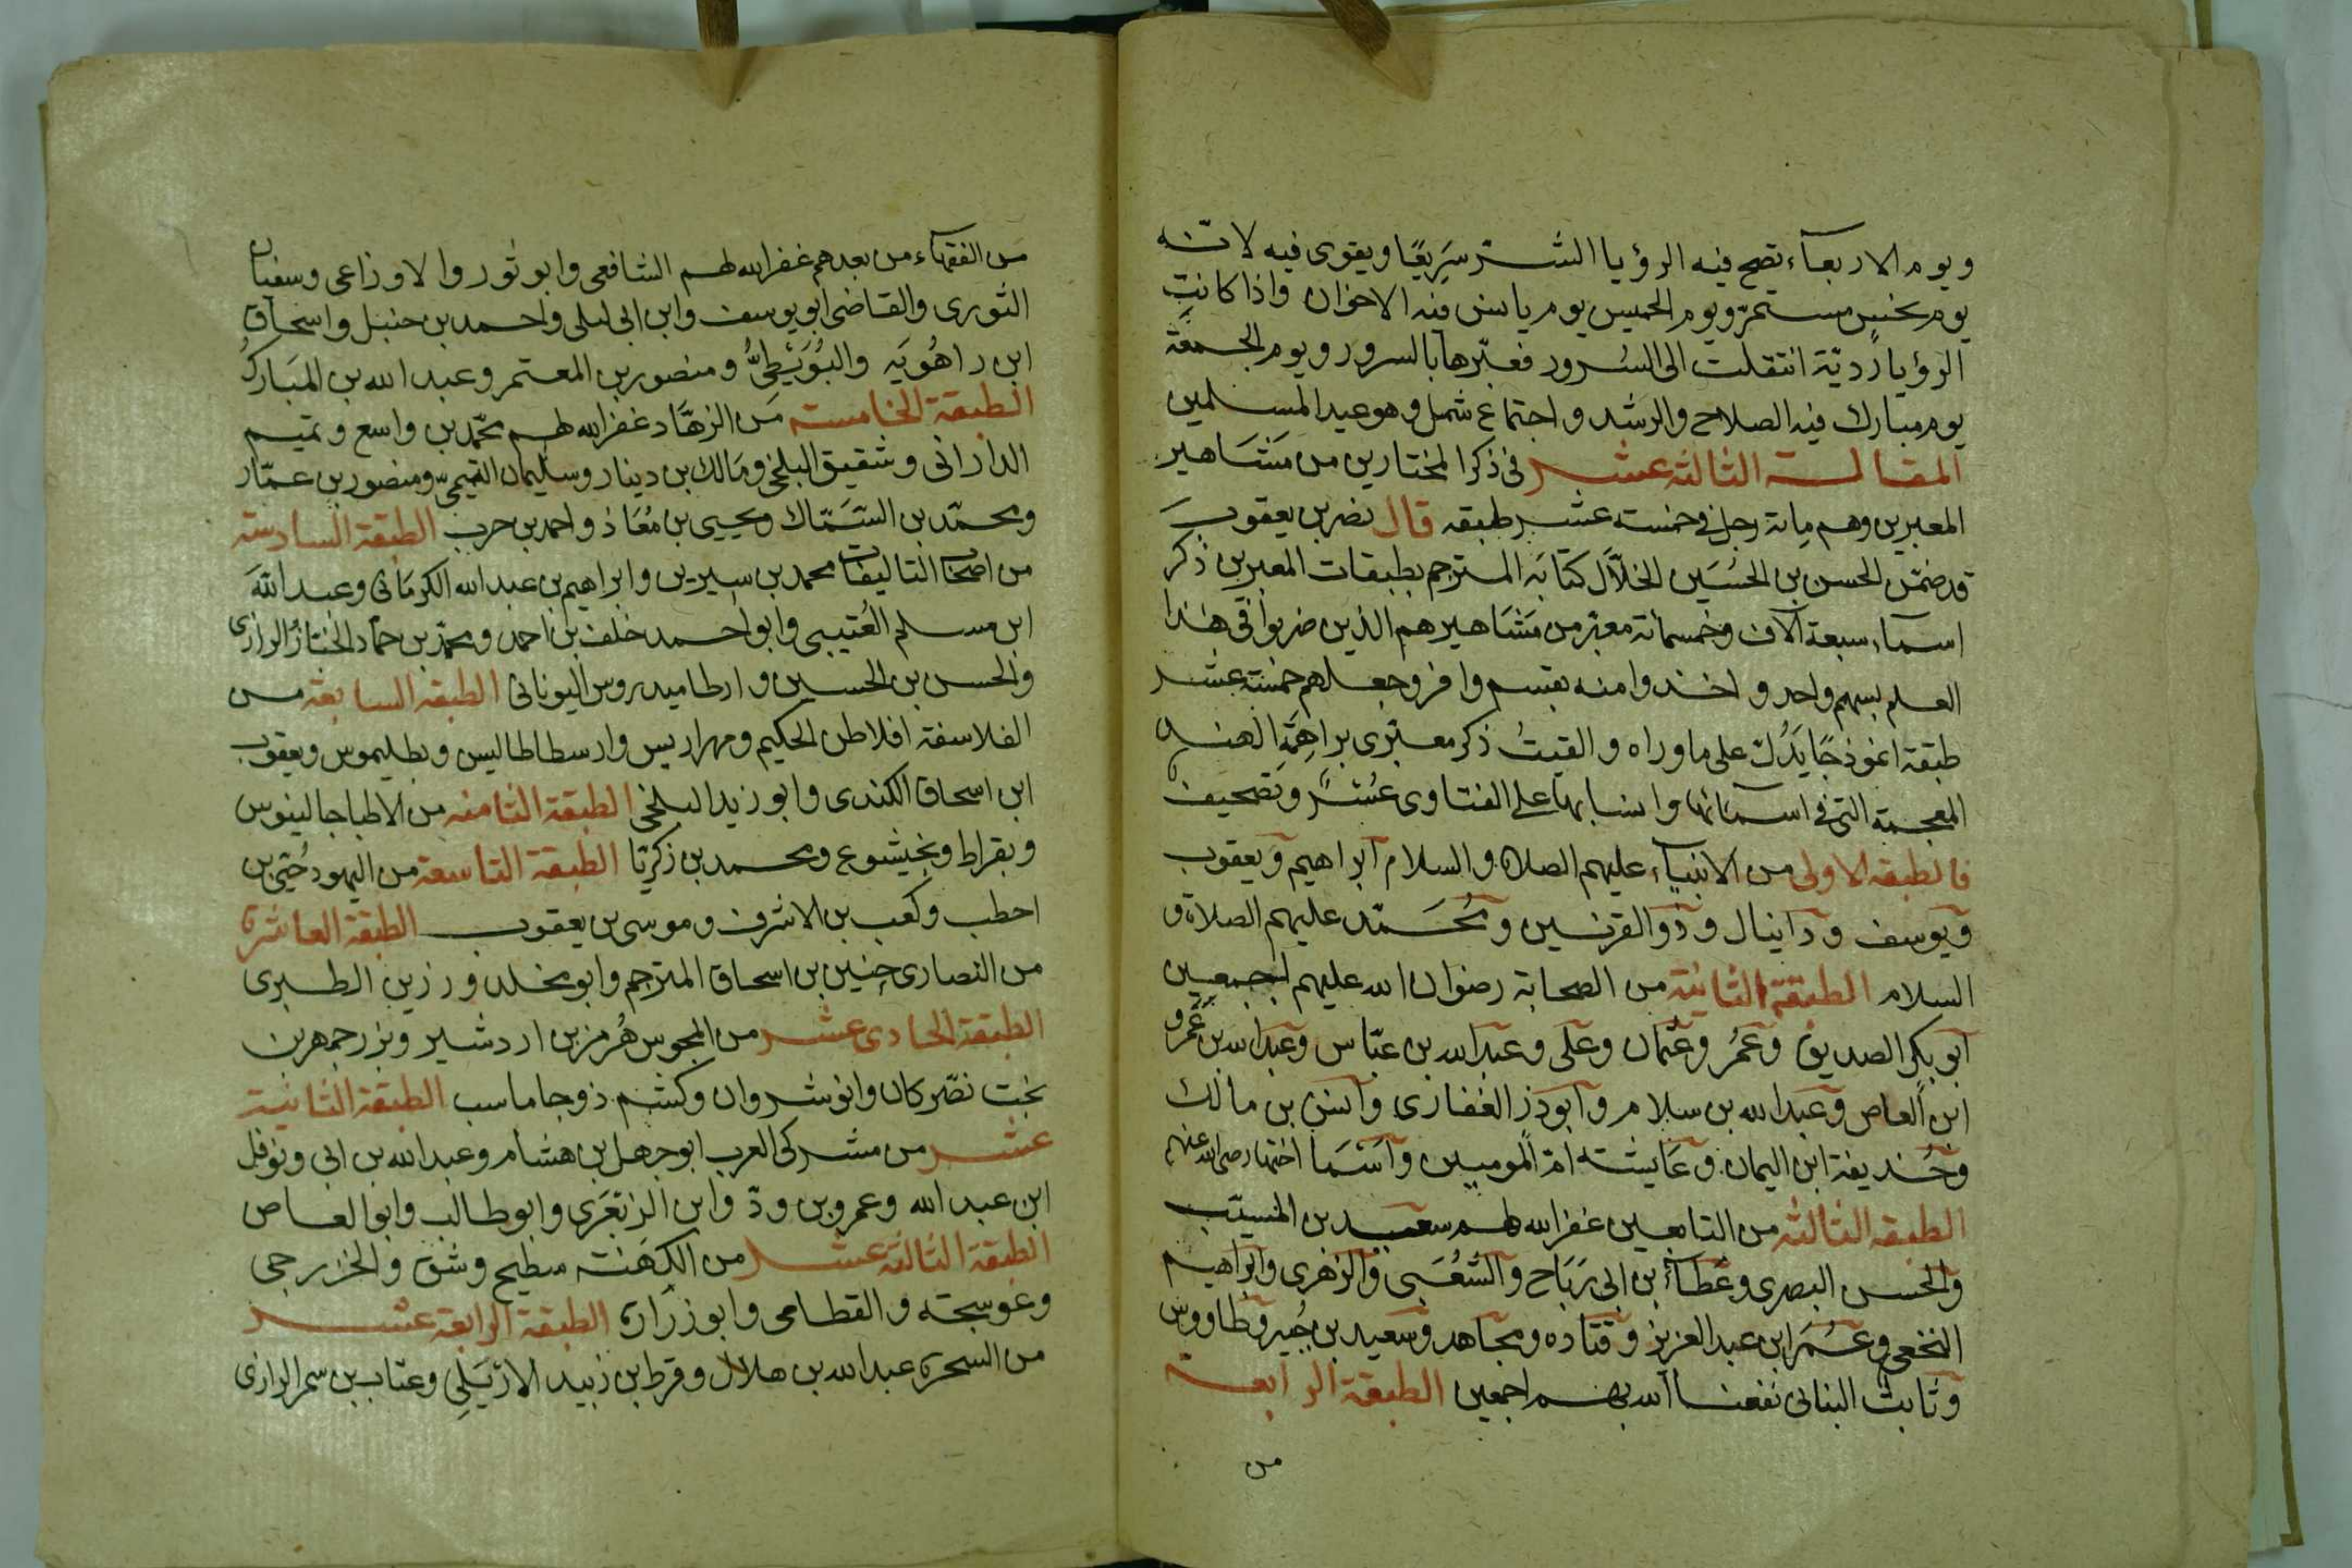 ويوم الاربعاء تصح فيه الرؤيا الشر سَرِيعًا ويقوى فيه لانه
يوم نحس مستمر ويوم الخميس يوم يانس فيه الاخوان واذا كانت
الرؤيا رديّة انتقلت الى السُرور فعبّرها بالسرور ويوم الجمعة
يوم مبارك فيه الصلاح والرشد واجتماع شمل وهو عيد المسلمين
المقالة الثالثة عشر فى ذكر المختارين من مشاهير
المعبرين وهم ماىة رجل فى خمسة عشر طبقه قال نصر بن يعقوب
قد ضمّن الحسن بن الحُسَين الخلّال كتابه المترجم بطبقات المعبرين ذكر
اسماء سبعة آلاف وخمسمائة معبّر من مَشَاهيرهم الذين ضربوا فى هذا
العلم بسهم واحد واخذوا منه بقسم وافر وجعلهم خمسة عشر
طبقة انموذجًا يَدُلّ على ماوراه والقيتُ ذكر معبّرى براهمة الهند
المعجمة التى فى اسمائها وانسابها على الفتاوى عُسْرٌ وتصحيف
فالطبقه الاولى من الانبياء عليهم الصلاه والسلام ابراهيم ويعقوب
ويوسف ودانيال وذو القرنين ومُحَمّد عليهم الصلاة و
السلام الطبقة الثانية من الصحابة رضوان الله عليهم اجمعين
ابو بكر الصديق وعُمَرُ وعثمان وعلى وعبد الله بن عبّاس وعبد الله بن عَمْرو
ابن العاص وعبد الله بن سلام وابوذر الغفارى وانس بن مالك
وحُذيفة ابن اليمان وعَايشه امّ المومنين وأسْمَا اختها رضى الله عنهم
الطبقه الثالثة من التابعين غفر الله لهم سعيد بن المسيّب
والحسن البصرى وعَطَاءُ بن ابى رَبَاح والشَعْبى والزهرى وابراهيم
النخعى وعُمَرَ ابن عبد العزيز وقتاده ومجاهد وسعيد بن جُبير وطاووس
وثابت البنانى نفعنا الله بهم اجمعين الطبقة الرابعة
من
من الفقهاء من بعدهم غفر الله لهم الشافعى وابو ثور والاوزاعى وسفيان
الثورى والقاضى ابو يوسف وابن ابى ليلى واحمد بن حنبل واسحاق
ابن راهُويَه والبُوَيْطِىُّ ومنصور بن المعتمر وعبد الله بن المبَارك
الطبقة الخامسة من الزهّاد غفر الله لهم محمّد بن واسع وتميم
الدارانى وشقيق البلخى ومالك بن دينار وسليمان التيمىّ ومنصور بن عمّار
ومحمّد بن السَّمّاك ويحيى بن مُعَاذ واحمد بن حرب الطبقة السادسة
من اصحاب التاليفات محمد بن سيرين وابراهيم بن عبد الله الكرمَانى وعبد الله
ابن مسلم العُتيبى وابو احمد خلف بن احمد ومحمّد بن حمّاد الخبّازُ الرازى
والحسن بن الحسين وارطاميدروس اليونانى الطبقه السابعة من
الفلاسفة افلاطن الحكيم ومهراريس وارسطاطاليس وبطليموس ويعقوب
ابن اسحاق الكندى وابو زيد البلخى الطبقة الثامنه من الاطبا جالينوس
وبقراط وبخيشوع ومحمد بن زكريّا الطبقة التاسعة من اليهود حُيَىّ بن
احطب وكعب بن الاشرف وموسى بن يعقوب الطبقة العاشرة
من النصارى حنين بن اسحاق المترجم وابو مخلد ورزين الطبرى
الطبقة الحادى عشر من المجوس هُرمز بن اردشير وبزرجمهر بن
بخت نصّر كان وانوشروان وكشم ذو جاماسب الطبقة الثانية
عشر من مشركى العرب ابو جهل بن هشام وعبد الله بن ابى ونوفل
ابن عبد الله وعمرو بن ودّ وابن الزبَعْرَى وابو طالب وابو العاص
الطبقة الثالثة عشر من الكَهَنَة سطيح وشق والخزرجى
وعوسجة والقطامى وابو زرارة الطبقة الرابعة عشر
من السحرة عبد الله بن هلال وقرط ابن زبيد الازيَلِى وعتاب بن سمر الرازى